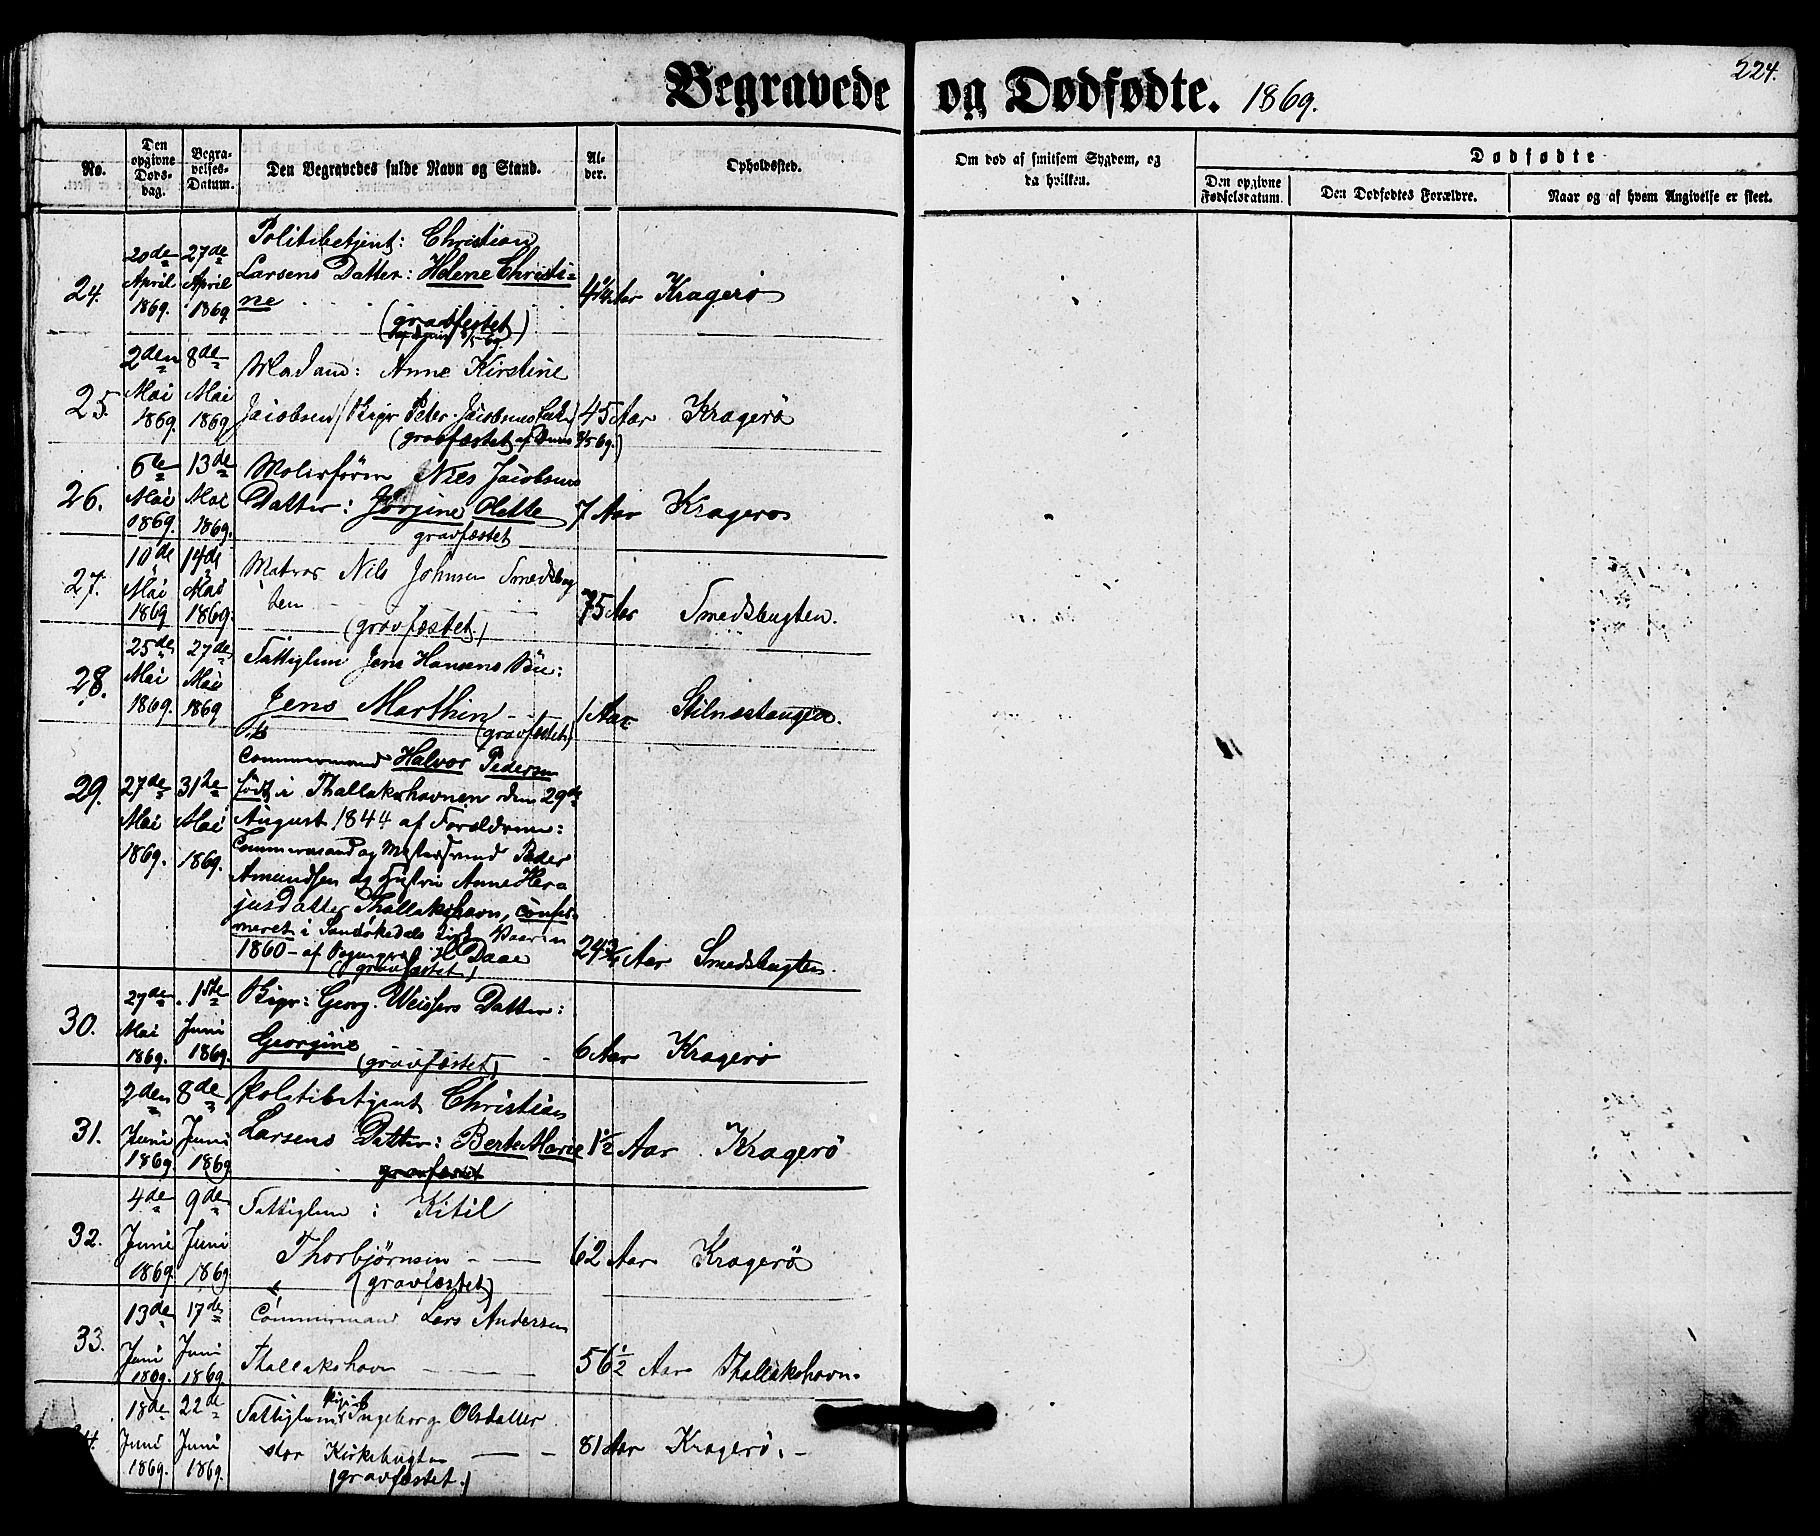 Begravede og Dødfødte. 1869.
224.
No.
Den opgivne Døds-dag.
Begra-velses-Datum.
Den Begravedes fulde Navn og Stand.
Al-der.
Opholdssted.
Om død af smitsom Sygdom, og da hvilken.
Dødfødte
Den opgivne Fødselsdatum.
Den Dødfødtes Forældre.
Naar og af hvem Angivelse er skeet.
24.
20de April 1869.
27de April 1869.
Politibetjent: Christian
Larsens Datter: Helene Christi-
ne
(gravfæstet)
4 1/4 Aar
Kragerö
25.
2den Mai 1869.
8de Mai 1869
Madam: Anne Kirstine
Jacobsen / Bigr Peter Jacobsens Enke)
(gravfæstet af Duus 8/5 69.)
45 Aar
Kragerö
26.
6te Mai 1869.
13de Mai 1869.
Nils Jacobsens
Datter: Jörgine Olette
gravfæstet
7 Aar
Kragerö
27.
10de Mai 1869
14de Mai 1869.
Matros Nils Johnsen Smedsbug
ten
(gravfæstet)
75 Aar
Smedsbugten.
28.
25de Mai 1869.
27de Mai 1869
Fattiglem Jens Hansens
Jens Marthin
(gravfæstet)
1 Aar
Stilnestangen.
29.
27de Mai 1869.
31te Mai 1869.
Tömmermand Halvor Pedersen
född i Thallakshavnen den 29de
August 1844 af Forældrene:
Tömmermand og Peder
Amundsen og Hustru Anne Hera
jusdatter Thallakshavn, confir
meret i Sanökedals Kirke Vaaren
1860 - af H Daae
(gravfæstet)
24 3/4 Aar
Smedsbugten
30.
27de Mai 1869.
1ste Juni 1869.
Bigr: Georg Weissers Datter:
Georgine
(gravfæstet)
6 Aar
Kragerö
31.
2den Juni 1869
8de Juni 1869
Politibetjent Christian
Larsens Datter: Berte Marie
gravfæstet
1 1/2 Aar
Kragerö
32.
4de Juni 1869.
9de Juni 1869
Fattiglem: Kitil
Thorbjørnsen
(gravfæstet)
62 Aar
Kragerö
33.
13de Juni 1869.
17de Juni 1869.
Tömmermand Lars Andersen
Thallakshavn
56 1/2 Aar
Thallakshavn.
18de Juni 1869.
22de Juni 1869.
Fattiglem Pigen Ingeborg Olsdatter
stor Kirkebugten
(gravfæstet.)
81 Aar
Kragerö.